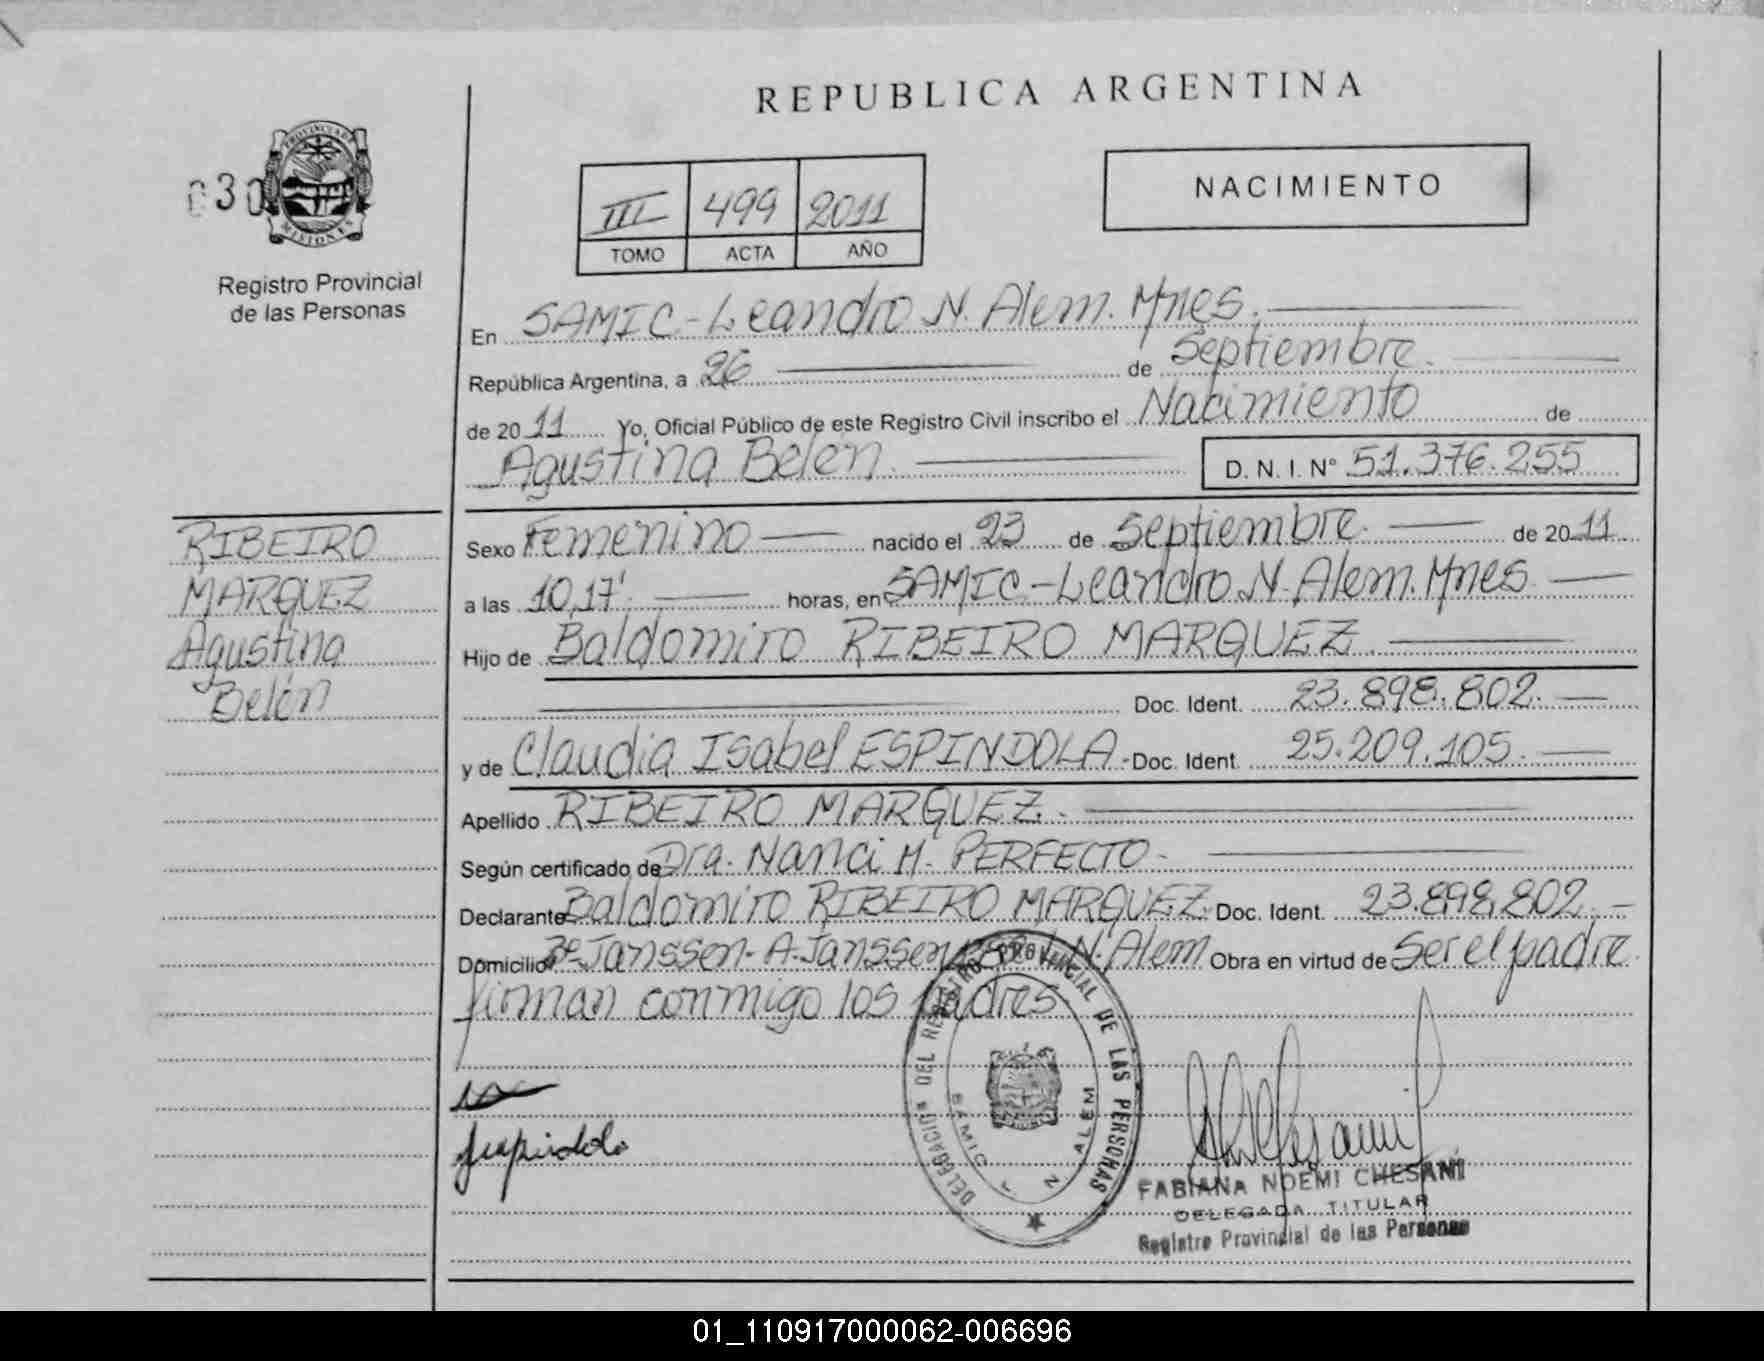 REPUBLICA ARGENTINA
030
PROVINCIA DE MISIONES
Registro Provincial
de las Personas
III 499 2011
TOMO ACTA AÑO
NACIMIENTO
En SAMIC-Leandro N. Alem. Mnes.
República Argentina, a 26 de Septiembre.
de 2011 Yo, Oficial Público de este Registro Civil inscribo el Nacimiento de
Agustina Belén. D. N. I. N° 51.376.255
RIBEIRO
MARQUEZ
Agustina
Belén
Sexo Femenino nacido el 23 de Septiembre. de 2011
a las 10,17' horas, en SAMIC-Leandro N. Alem. Mnes
Hijo de Baldomiro RIBEIRO MARQUEZ
Doc. Ident. 23.898.802.
y de Claudia Isabel ESPINDOLA.- Doc. Ident. 25.209.105.
Apellido RIBEIRO MARQUEZ.-
Según certificado de Dra. Nanci H. PERFECTO-
Declarante Baldomiro RIBEIRO MARQUEZ Doc. Ident. 23.898.802.
Domicilio Bº Janssen- A. Janssen L. N. Alem Obra en virtud de Ser el padre.
firman conmigo los padres.
DELEGACION DEL REGISTRO PROVINCIAL DE LAS PERSONAS
SAMIC L N ALEM
FABIANA NOEMI CHESANI
DELEGADA TITULAR
Registro Provincial de las Personas
01_110917000062-006696